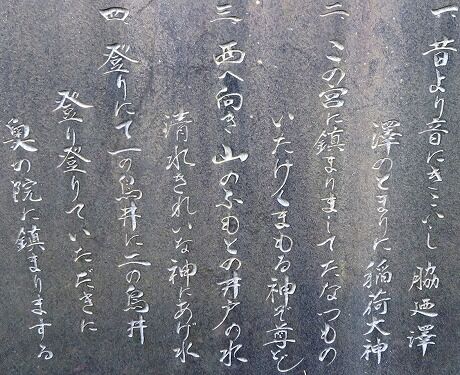 一、昔より音にきこへし 脇廼澤
澤のとまりに稲荷大神
二、この宮に鎮まりましてたなつもの
いたけくまもる神ぞ尊と
三、西へ向き山のふもとの井戸の水
清水きれいな神にあげ水
四、登りにて一の鳥井に二の鳥井
登り登りていただきに
奥の院に鎮まりまする